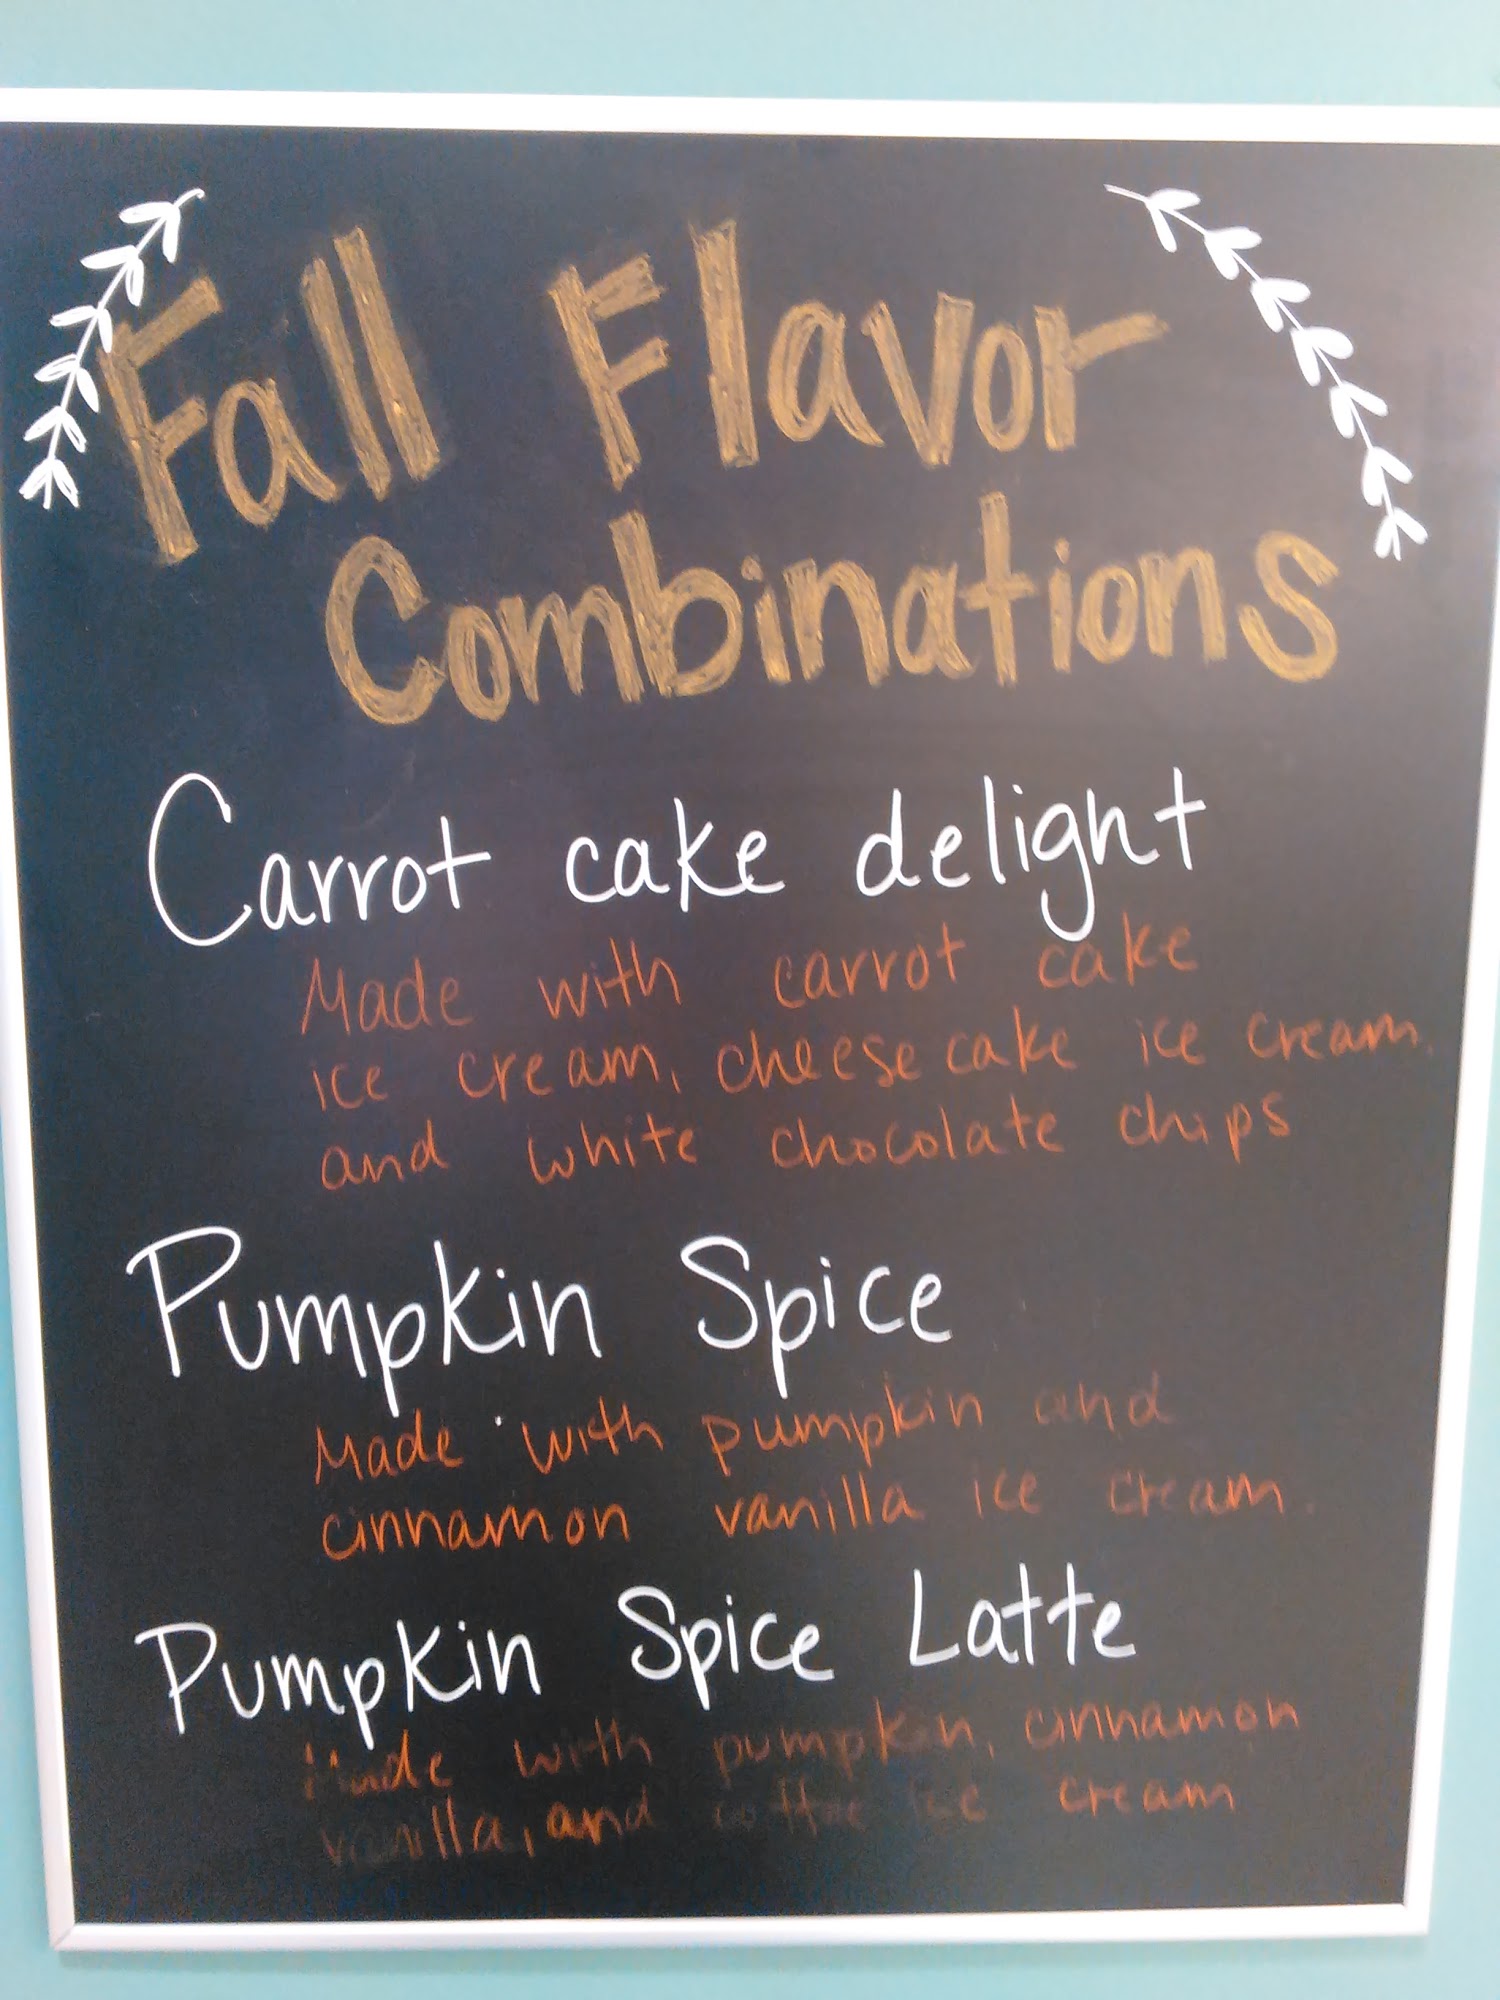 Fall Flavor
Combinations
Carrot cake delight
Made with carrot cake
ice cream, cheesecake ice cream,
and white chocolate chips
Pumpkin Spice
Made with pumpkin and
cinnamon vanilla ice cream.
Pumpkin Spice Latte
Made with pumpkin, cinnamon
vanilla, and coffee ice cream